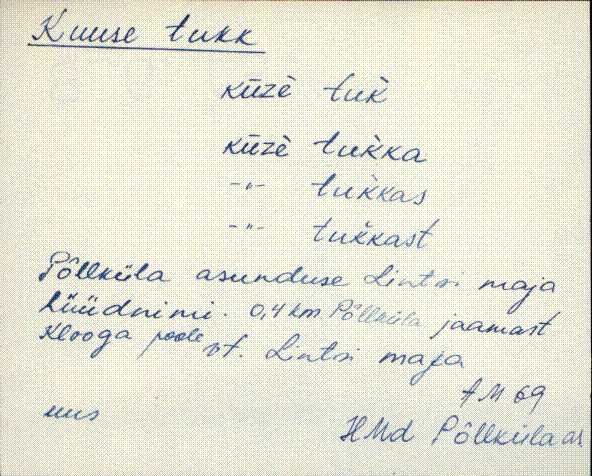 Kuuse tukk
kūzè tuk̀
kūzè tuk̀ka
-"- tuk̀kas
-"- tuk̀kast
Põllküla asunduse Lintsi maja
hüüdnimi. 0,4 km Põllküla jaamast
Klooga poole vt. Lintsi maja
AM 69
uus
HMd Põllküla as.